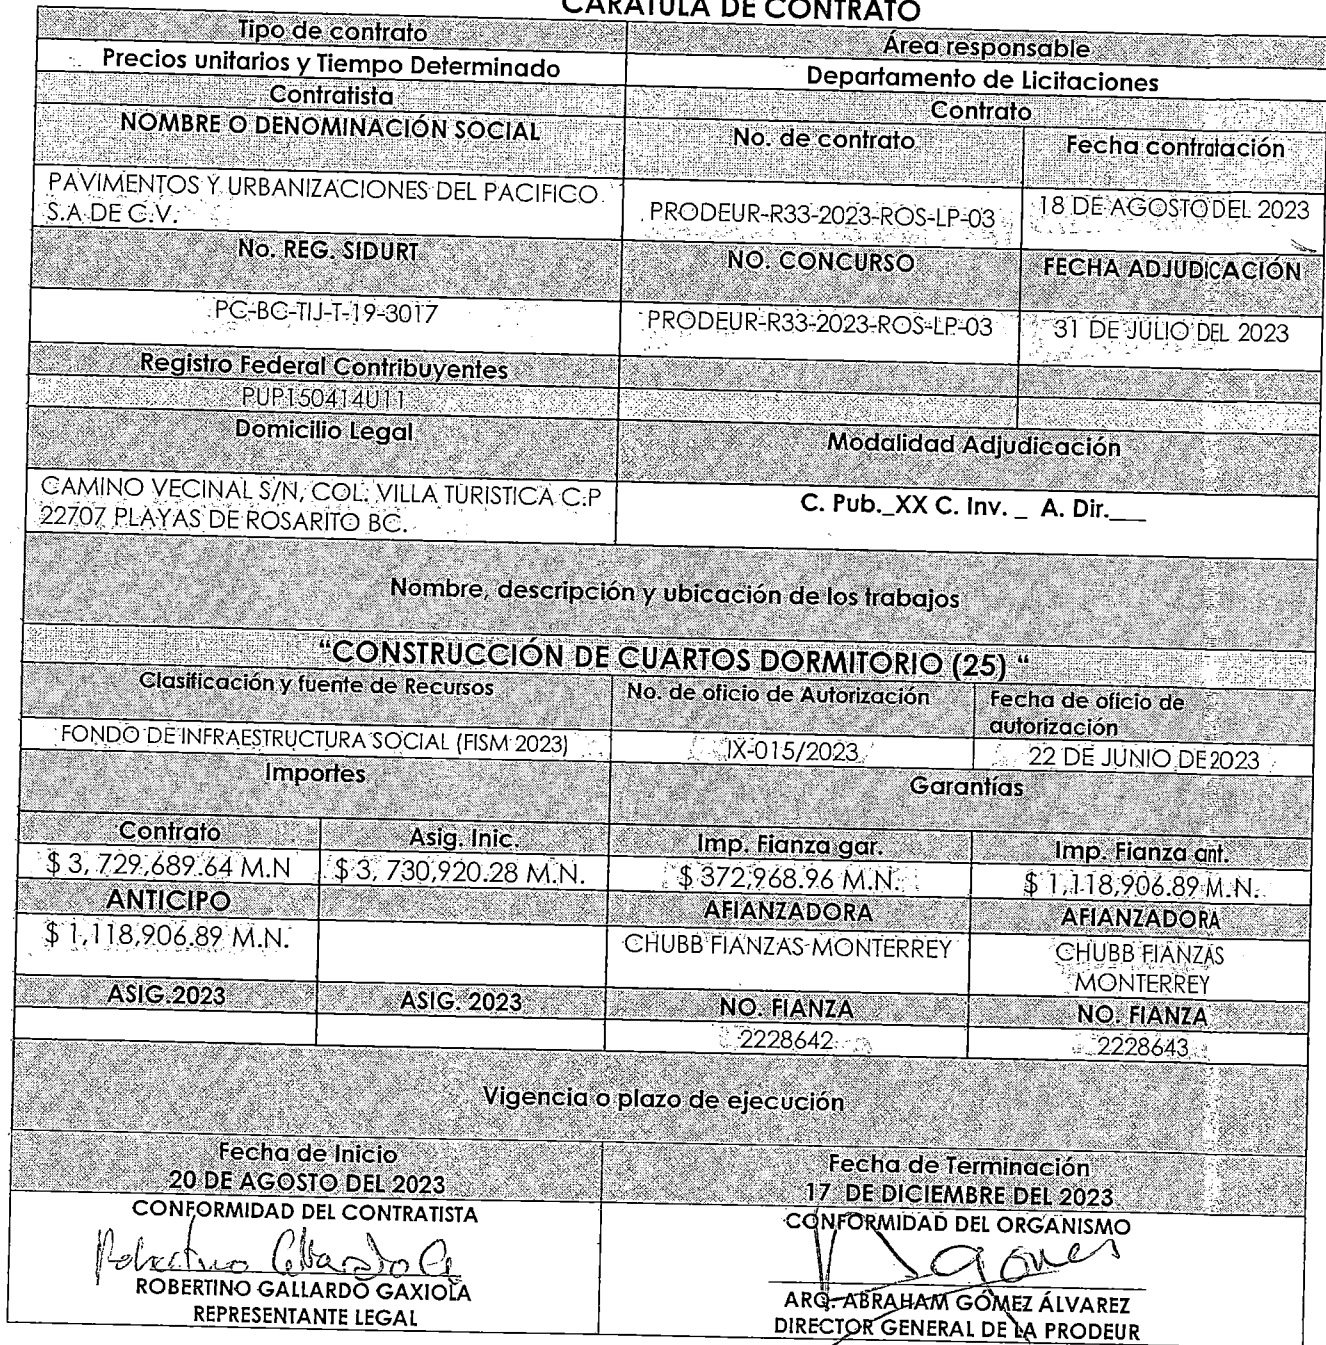 CARÁTULA DE CONTRATO
Tipo de contrato
Área responsable
Precios unitarios y Tiempo Determinado
Departamento de Licitaciones
Contratista
Contrato
NOMBRE O DENOMINACIÓN SOCIAL
No. de contrato
Fecha contratación
PAVIMENTOS Y URBANIZACIONES DEL PACIFICO
S.A DE C.V.
PRODEUR-R33-2023-ROS-LP-03
18 DE AGOSTO DEL 2023
No. REG. SIDURT
NO. CONCURSO
FECHA ADJUDICACIÓN
PC-BC-TIJ-T-19-3017
PRODEUR-R33-2023-ROS-LP-03
31 DE JULIO DEL 2023
Registro Federal Contribuyentes
PUP150414U11
Domicilio Legal
Modalidad Adjudicación
CAMINO VECINAL S/N, COL. VILLA TURISTICA C.P
22707 PLAYAS DE ROSARITO BC.
C. Pub._XX C. Inv. _ A. Dir.___
Nombre, descripción y ubicación de los trabajos
“CONSTRUCCIÓN DE CUARTOS DORMITORIO (25) “
Clasificación y fuente de Recursos
No. de oficio de Autorización
Fecha de oficio de
autorización
FONDO DE INFRAESTRUCTURA SOCIAL (FISM 2023)
IX-015/2023
22 DE JUNIO DE 2023
Importes
Garantías
Contrato
Asig. Inic.
Imp. Fianza gar.
Imp. Fianza ant.
$ 3, 729,689.64 M.N
$ 3, 730,920.28 M.N.
$ 372,968.96 M.N.
$ 1,118,906.89 M.N.
ANTICIPO
AFIANZADORA
AFIANZADORA
$ 1,118,906.89 M.N.
CHUBB FIANZAS MONTERREY
CHUBB FIANZAS
MONTERREY
ASIG.2023
ASIG. 2023
NO. FIANZA
NO. FIANZA
2228642
2228643
Vigencia o plazo de ejecución
Fecha de Inicio
20 DE AGOSTO DEL 2023
Fecha de Terminación
17 DE DICIEMBRE DEL 2023
CONFORMIDAD DEL CONTRATISTA
CONFORMIDAD DEL ORGANISMO
ROBERTINO GALLARDO GAXIOLA
REPRESENTANTE LEGAL
ARQ. ABRAHAM GÓMEZ ÁLVAREZ
DIRECTOR GENERAL DE LA PRODEUR